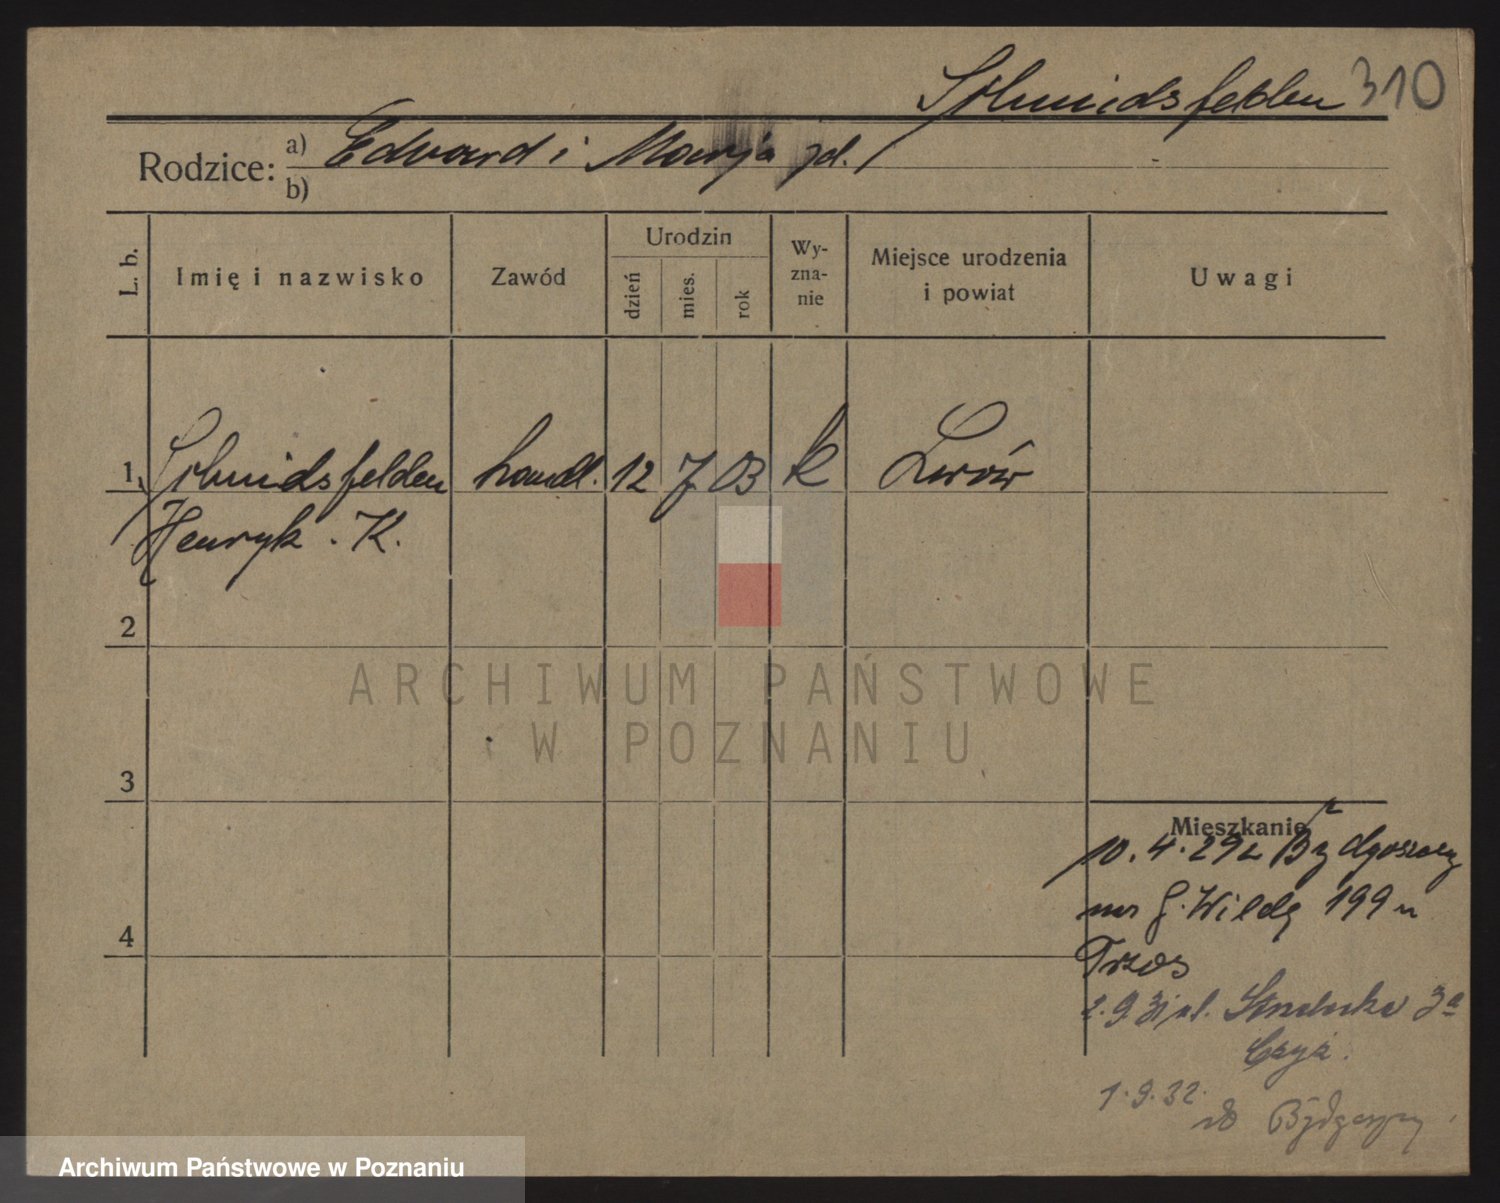 Schmidsfelden 310
Rodzice: a) Edward i Marja zd.
b)
L. b.
Imię i nazwisko
Zawód
Urodzin
dzień
mies.
rok
Wy-
zna-
nie
Miejsce urodzenia
i powiat
Uwagi
1 Schmidsfelden handl. 12 7 03 k Lwów
Henryk. K.
2
3
4
Mieszkanie
10.4.29 z Bydgoszczy
na G. Wildę 199 u
Trzos
2.9.31 ul. Strzelecka 3a
Czyż.
1.9.32.
do Bydgoszczy
ARCHIWUM PAŃSTWOWE
W POZNANIU
Archiwum Państwowe w Poznaniu